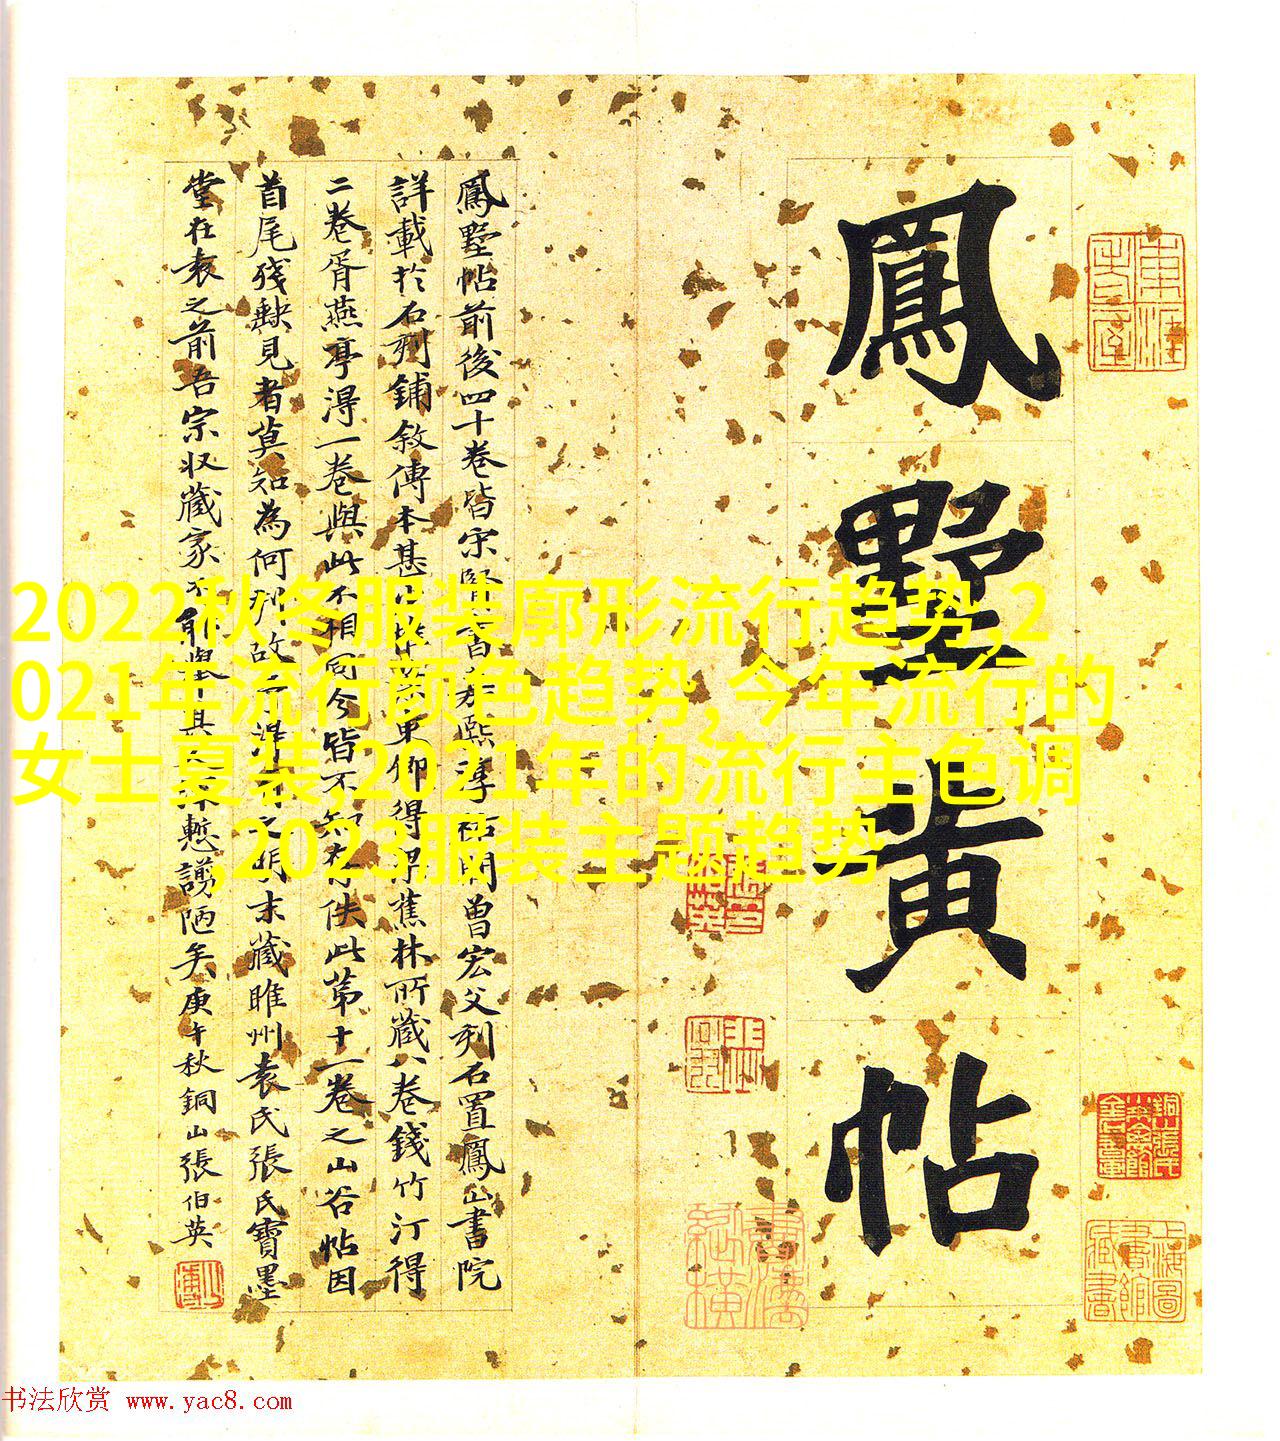 鳳墅黄帖
鳳墅帖前後四十卷皆宋賢書嘉熙淳祐間曾宏父刻石置鳳山書院
詳載於石刻鋪敘傳本甚得蕉林所藏八卷錢竹汀得
二卷胥燕亭得一卷與此不相同今皆不知存佚此第十一卷之山谷帖因
首尾殘缺見者莫知為何刻故得之明末藏睢州袁氏張氏寶墨
堂在袁之前吾宗収藏家不能舉其慙謭陋矣庚午秋銅山張伯英
2022秋冬服装廓形流行趋势,2
021年流行颜色趋势,今年流行的
女士夏装,2021年的流行主色调
,2023服装主题趋势
上海圖書館藏書
书法欣赏 www.yac8.com